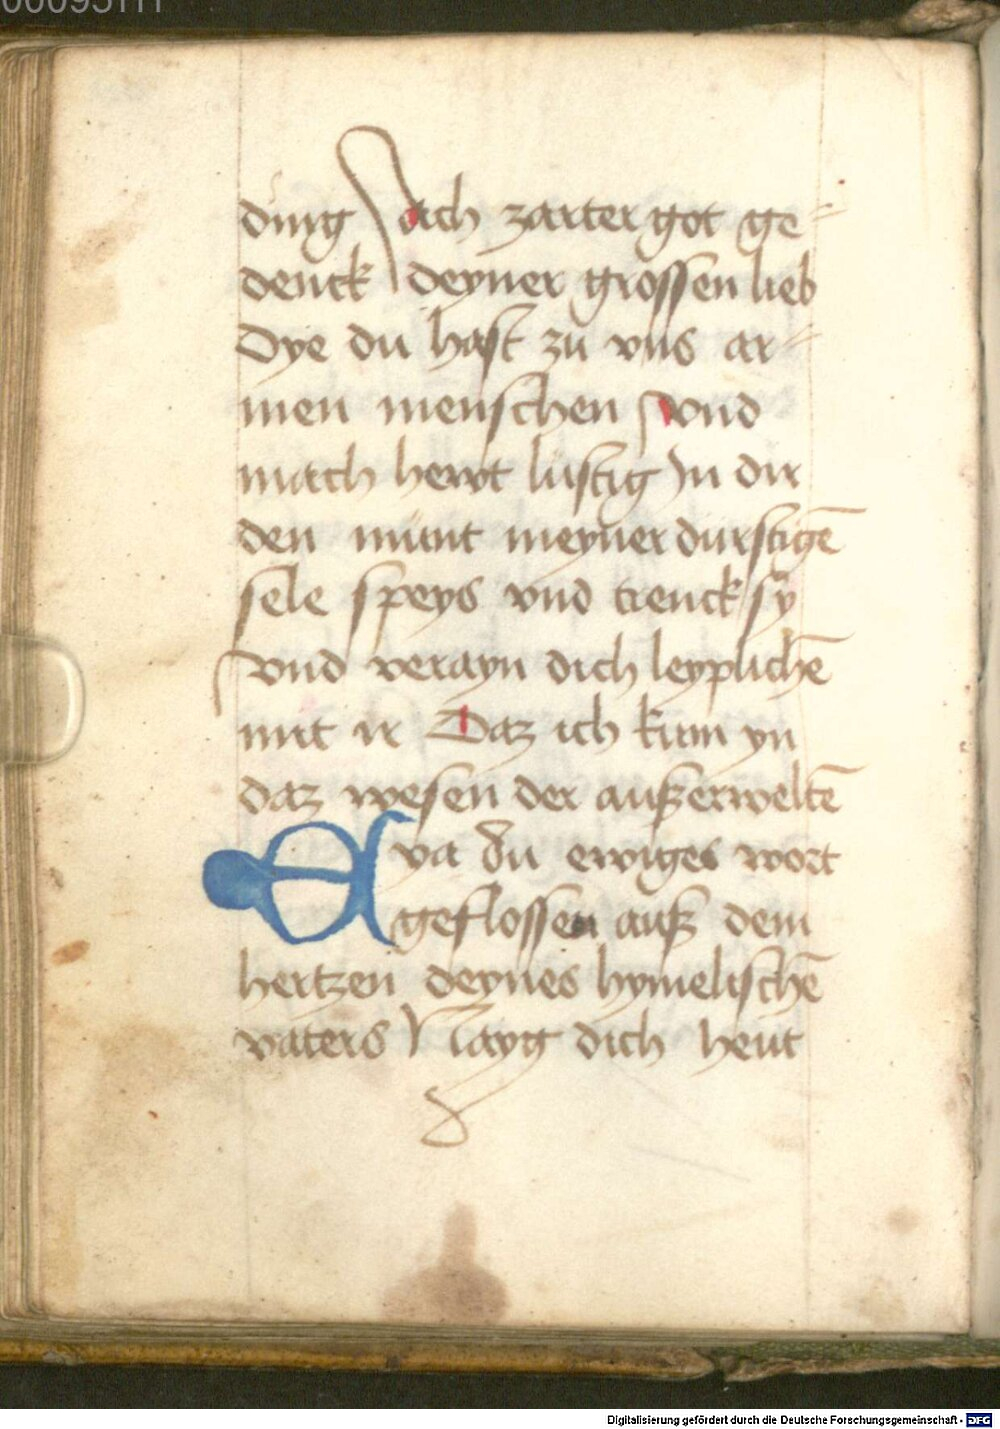 ding Ach zarter got ge-
denck deyner grossen lieb
Dye du hast zu vns ar-
men menschen vnd
mach hewt lustig In dir
den munt meyner durstigē
sele speys vnd trenck sy
vnd verayn dich leyplichē
mit ir Daz ich kum yn
daz wesen der außerweltē
Eya du ewiges wort
geflossen auß dem
hertzen deynes hymelischē
vaters Nayg dich heut
Digitalisierung gefördert durch die Deutsche Forschungsgemeinschaft - DFG